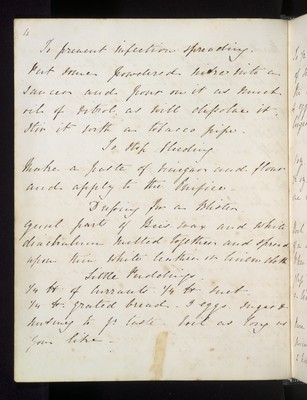 4
To prevent infection spreading.
Put some powdered nitre into a
saucer and pour on it as much
oil of vitriol as will dissolve it.
Stir it with a tobacco pipe.
To Stop Bleeding
Make a paste of vinegar and flour
and apply to the orifice.
Dressing for a Blister
equal parts of Bees wax and white
diachulum melted together and spread
upon thin white leather or linen cloth
Little Puddings.
1/4 lb of currants 1/4 lb suet
1/4 lb grated bread. eggs. sugar &
nutmeg to yr taste. boil as long as
you like.